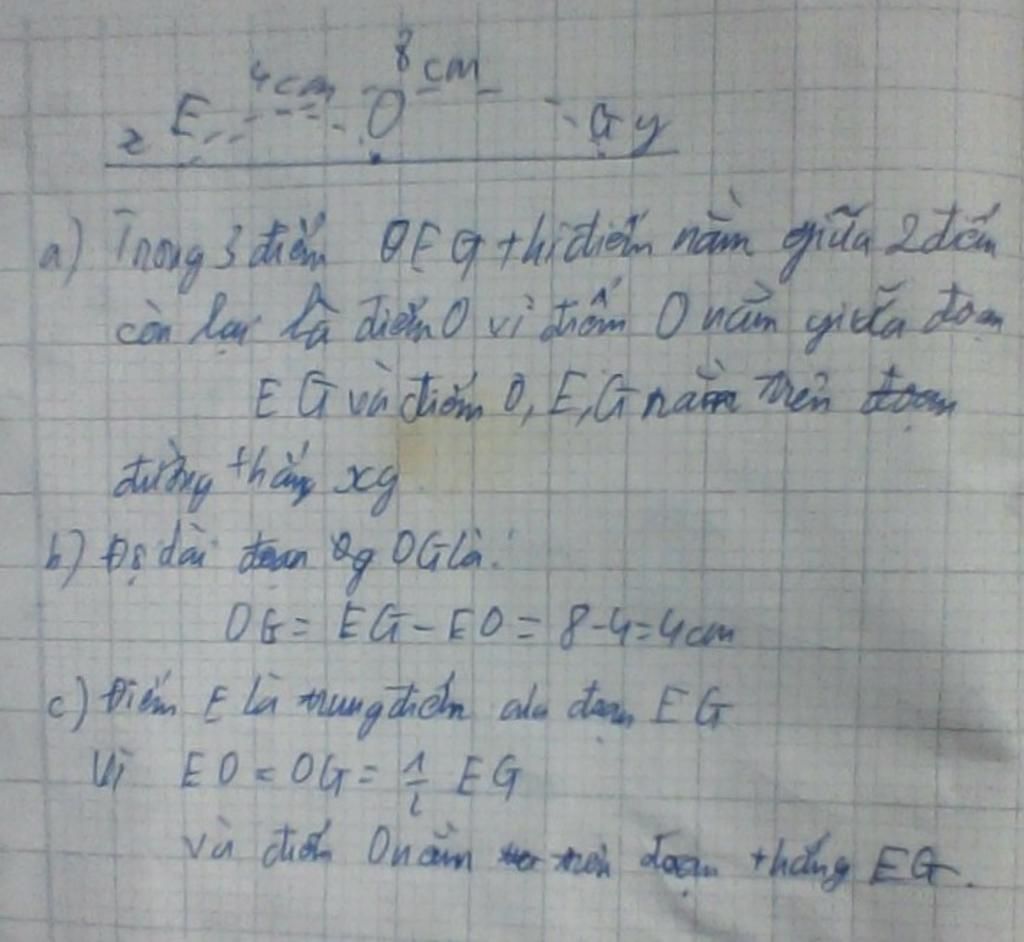 8 cm
4 cm
z E O G y
a) Trong 3 điểm O E G thì điểm nằm giữa 2 điểm
còn lại là điểm O vì điểm O nằm giữa đoạn
EG và điểm O, E, G nằm trên đoạn
đường thẳng xy
b) Độ dài đoạn OG là:
OG = EG - EO = 8 - 4 = 4 cm
c) Điểm E là trung điểm của đoạn EG
Vì EO = OG = 1/2 EG
và điểm O nằm trên đoạn thẳng EG.